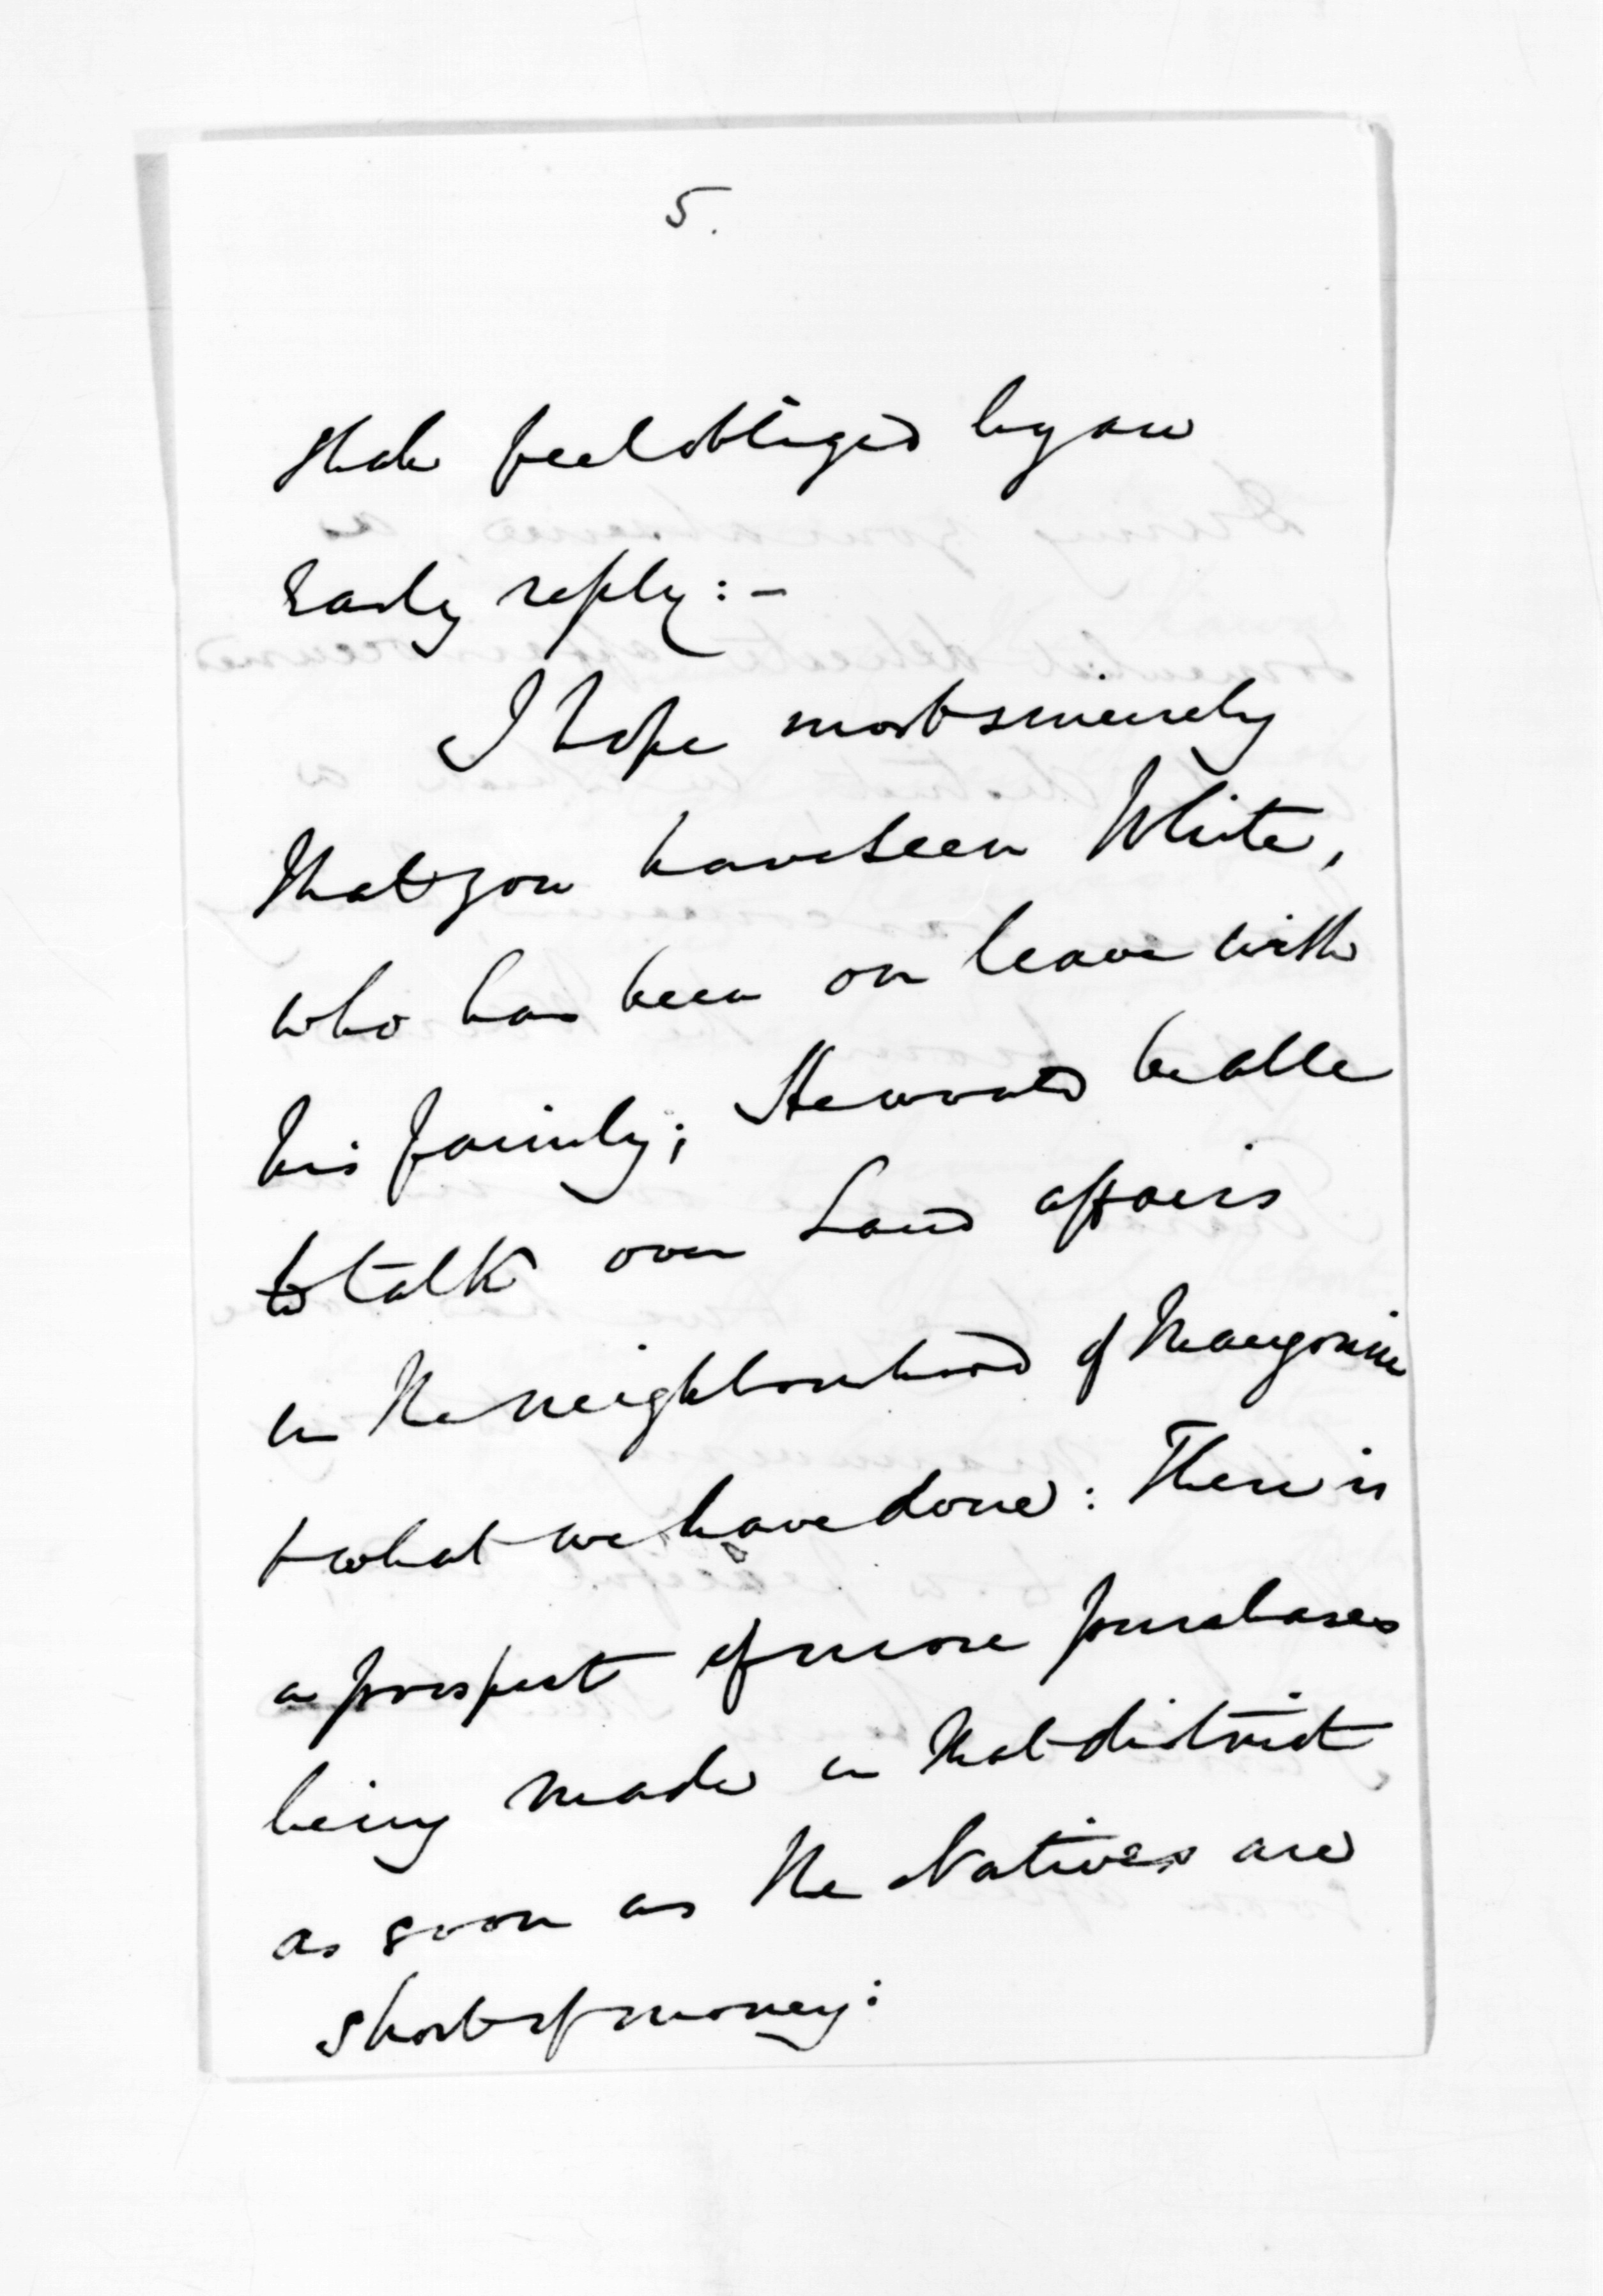 5.
shall feel obliged by an
early reply:-
I hope most sincerely
that you have seen White,
who has been on leave with
his family; He would be able
to talk over Land affairs
in the neighbourhood of Mangonui
& what we have done: There is
a prospect of more purchases
being made in that district
as soon as the Natives are
short of money: